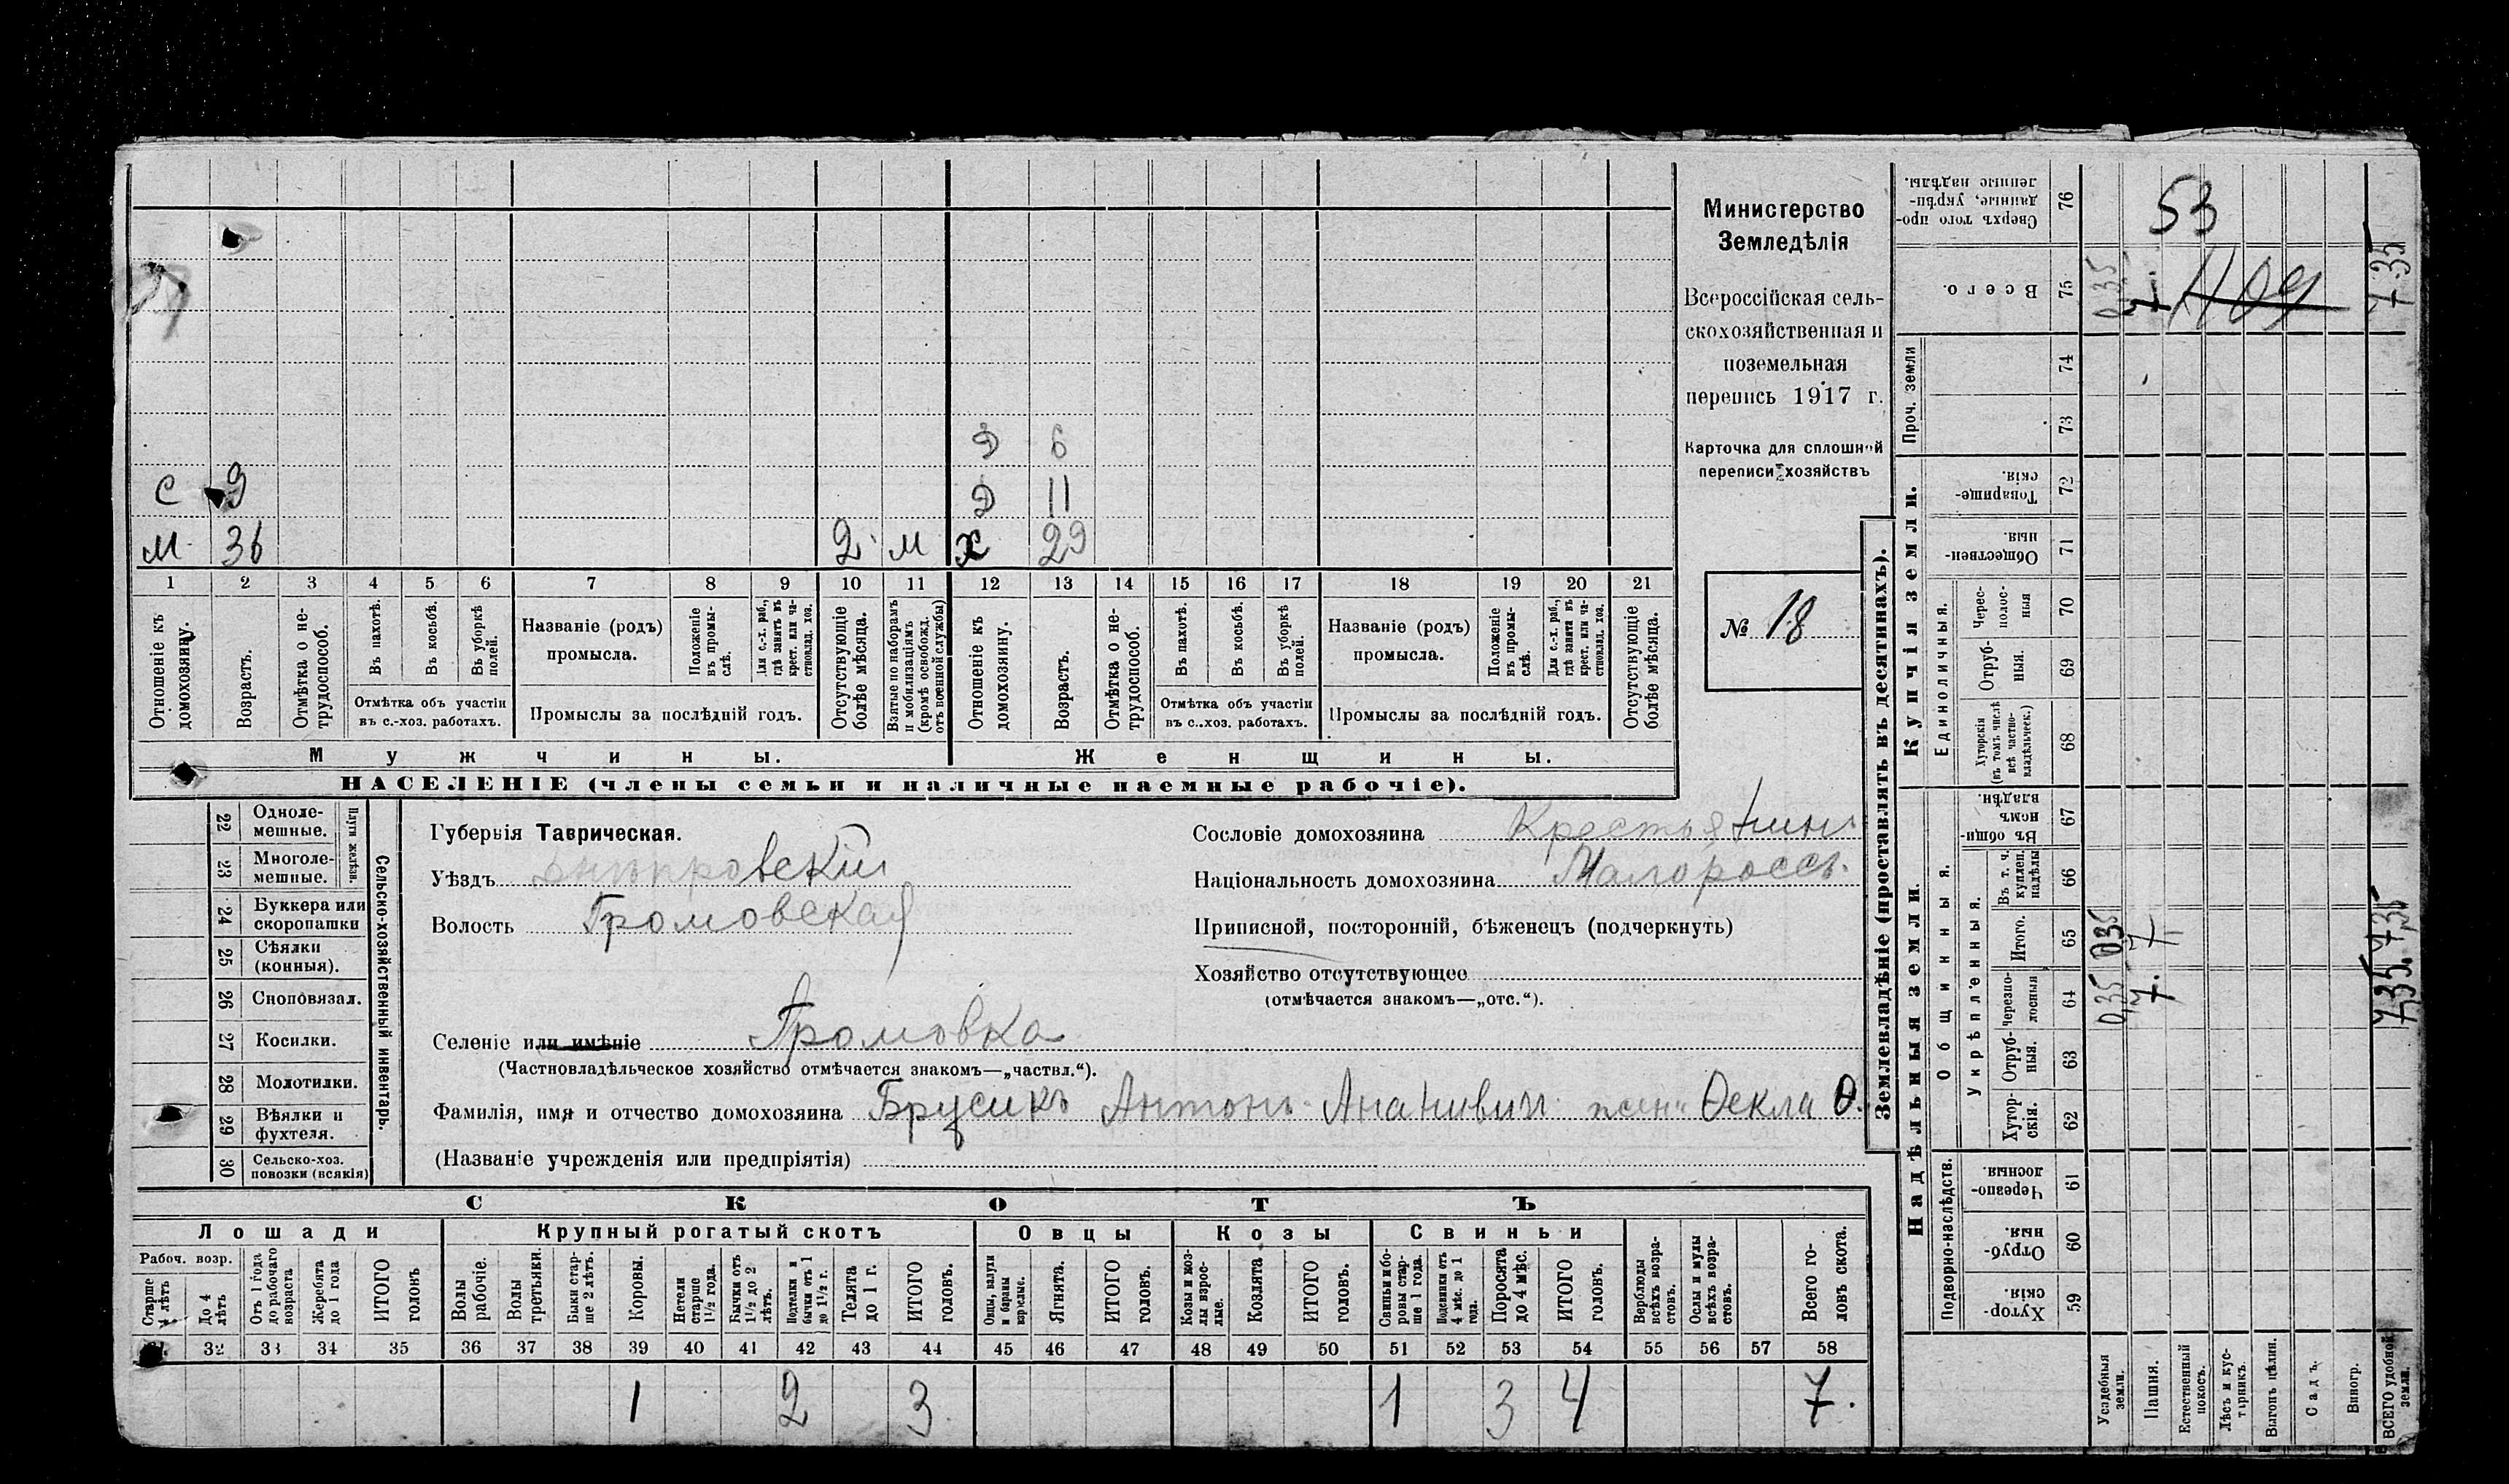 С 9 Д 6
Д 11
М 36 2 М Х 29
1 2 3 4 5 6 7 8 9 10 11 12 13 14 15 16 17 18 19 20 21
Отношеніе къ домохозяину.
Возрастъ.
Отмѣтка о нетрудоспособ.
Въ пахотѣ.
Въ косьбѣ.
Въ уборкѣ полей.
Отмѣтка объ участіи въ с.-хоз. работахъ.
Названіе (родъ) промысла.
Положеніе въ промыслѣ.
Для с.-х. раб., гдѣ занятъ въ крест. или частновлад. хоз.
Промыслы за послѣдній годъ.
Отсутствующіе болѣе мѣсяца.
Взятые по наборамъ и мобилизаціямъ (кромѣ освобожд. отъ военной службы)
Отношеніе къ домохозяину.
Возрастъ.
Отмѣтка о нетрудоспособ.
Въ пахотѣ.
Въ косьбѣ.
Въ уборкѣ полей.
Отмѣтка объ участіи въ с.-хоз. работахъ.
Названіе (родъ) промысла.
Положеніе въ промыслѣ.
Для с.-х. раб., гдѣ занята въ крест. или частновлад. хоз.
Промыслы за послѣдній годъ.
Отсутствующіе болѣе мѣсяца.
Мужчины. Женщины.
НАСЕЛЕНІЕ (члены семьи и наличные наемные рабочіе).
Министерство
Земледѣлія
Всероссійская сель-
скохозяйственная и
поземельная
перепись 1917 г.
Карточка для сплошной
переписи хозяйствъ
№ 18
22 Одноле-
мешные.
23 Многоле-
мешные.
Плуги желѣзн.
24 Буккера или
скоропашки
25 Сѣялки
(конныя).
26 Сноповязал.
27 Косилки.
28 Молотилки.
29 Вѣялки и
фухтеля.
30 Сельско-хоз.
повозки (всякія)
Сельско-хозяйственный инвентарь.
Губернія Таврическая.
Уѣздъ Днѣпровскій
Волость Громовская
Селеніе или имѣніе Громовка
(Частновладѣльческое хозяйство отмѣчается знакомъ—„частвл.“).
Фамилія, имя и отчество домохозяина Брусикъ Антонъ Ананивич жена Ѳекла Ѳ.
(Названіе учрежденія или предпріятія)
Сословіе домохозяина Крестьянинъ
Національность домохозяина Малороссъ.
Приписной, посторонній, бѣженецъ (подчеркнуть)
Хозяйство отсутствующее
(отмѣчается знакомъ—„отс.“).
СКОТЪ
Лошади Крупный рогатый скотъ Овцы Козы Свиньи
Рабоч. возр.
Старше 4 лѣтъ
До 4 лѣтъ
Отъ 1 года до рабочаго возраста
Жеребята до 1 года
ИТОГО головъ
Волы рабочіе.
Волы третьяки.
Быки старше 2 лѣтъ.
Коровы.
Нетели старше 1½ года.
Бычки отъ 1½ до 2 лѣтъ.
Подтелки и бычки отъ 1 до 1½ г.
Телята до 1 г.
ИТОГО головъ.
Овцы, валухи и бараны взрослые.
Ягнята.
ИТОГО головъ.
Козы и козлы взрослые.
Козлята.
ИТОГО головъ.
Свиньи и боровы старше 1 года.
Подсвинки отъ 4 мѣс. до 1 года.
Поросята до 4 мѣс.
ИТОГО головъ.
Верблюды всѣхъ возрастовъ.
Ослы и мулы всѣхъ возрастовъ.
Всего головъ скота.
32 33 34 35 36 37 38 39 40 41 42 43 44 45 46 47 48 49 50 51 52 53 54 55 56 57 58
1 2 3 1 3 4 7.
Землевладѣніе (проставлять въ десятинахъ).
Купчія земли.
Надѣльныя земли.
Сверхъ того проданные, укрѣпленные надѣлы. 76 53
Всего. 75 0,35 7. 409 7.35
Проч. земли
74
73
Товарищескія. 72
Общественныя. 71
Единоличныя.
Черес-полосныя 70
Отрубныя. 69
Хуторскія (въ томъ числѣ всѣ частновладѣльческ.) 68
Общинныя.
Въ общинномъ владѣн. 67
Укрѣпленныя.
Въ т. ч. куплен. надѣлы 66
Итого. 65 0,35 7 7,35
Черезполосныя 64 0,35 7. 7,35.
Отрубныя. 63
Хуторскія. 62
Подворно-наслѣдств.
Черезполосныя 61
Отрубныя. 60
Хуторскія. 59
Усадебныя земли.
Пашня.
Естественный покосъ.
Лѣсъ и кустарникъ.
Выгонъ цѣлин.
Садъ.
Виногр.
ВСЕГО удобной земли.